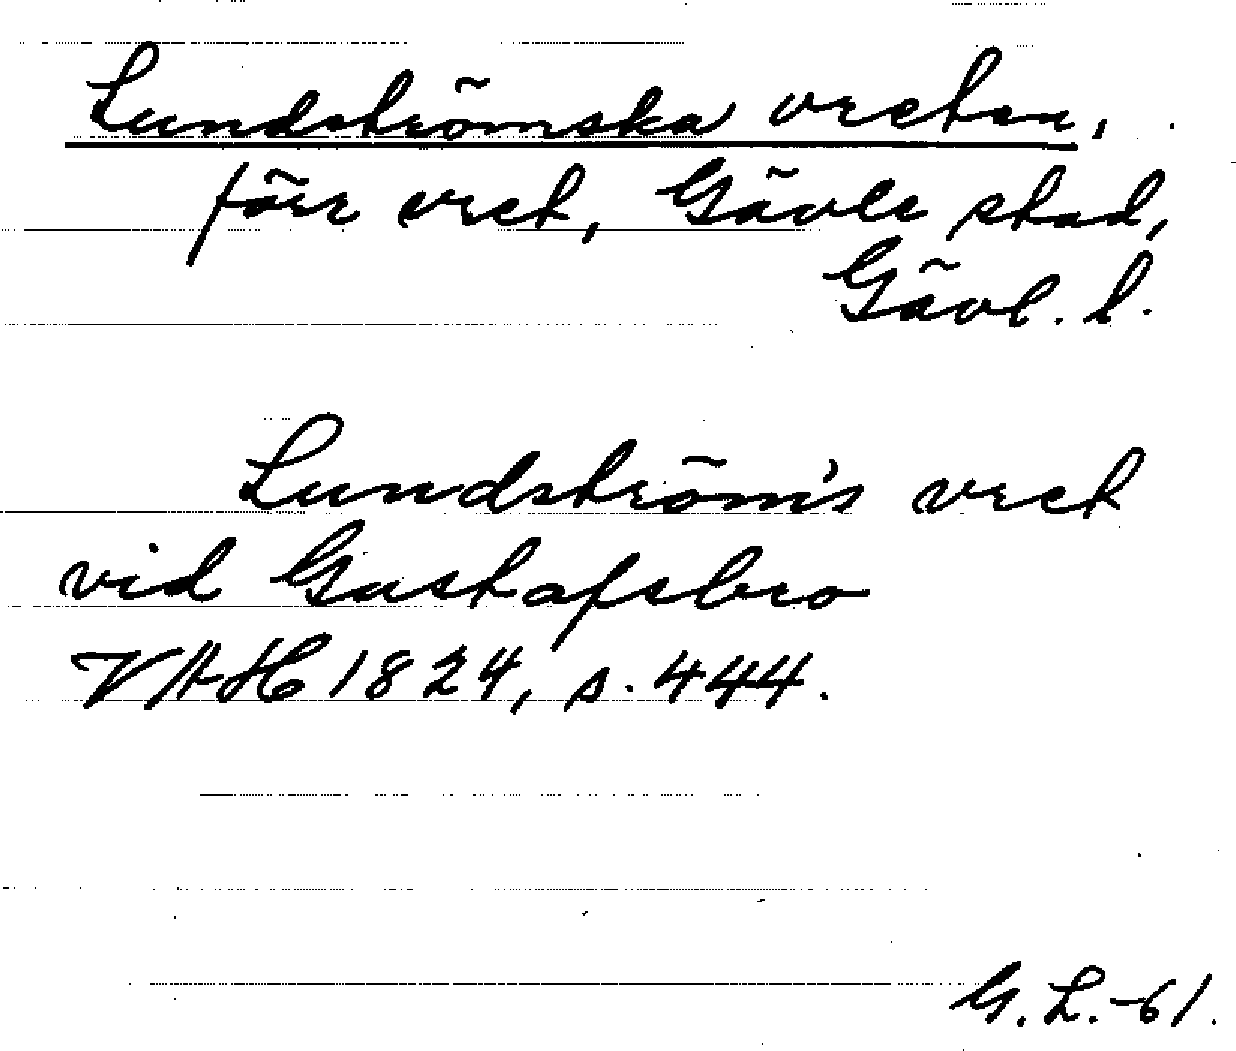 Lundströmska vreten,
förr vret, Gävle stad,
Gävl. l.
Lundström's vret
vid Gustafsbro
VAH 1824, s. 444.
G. L. -61.